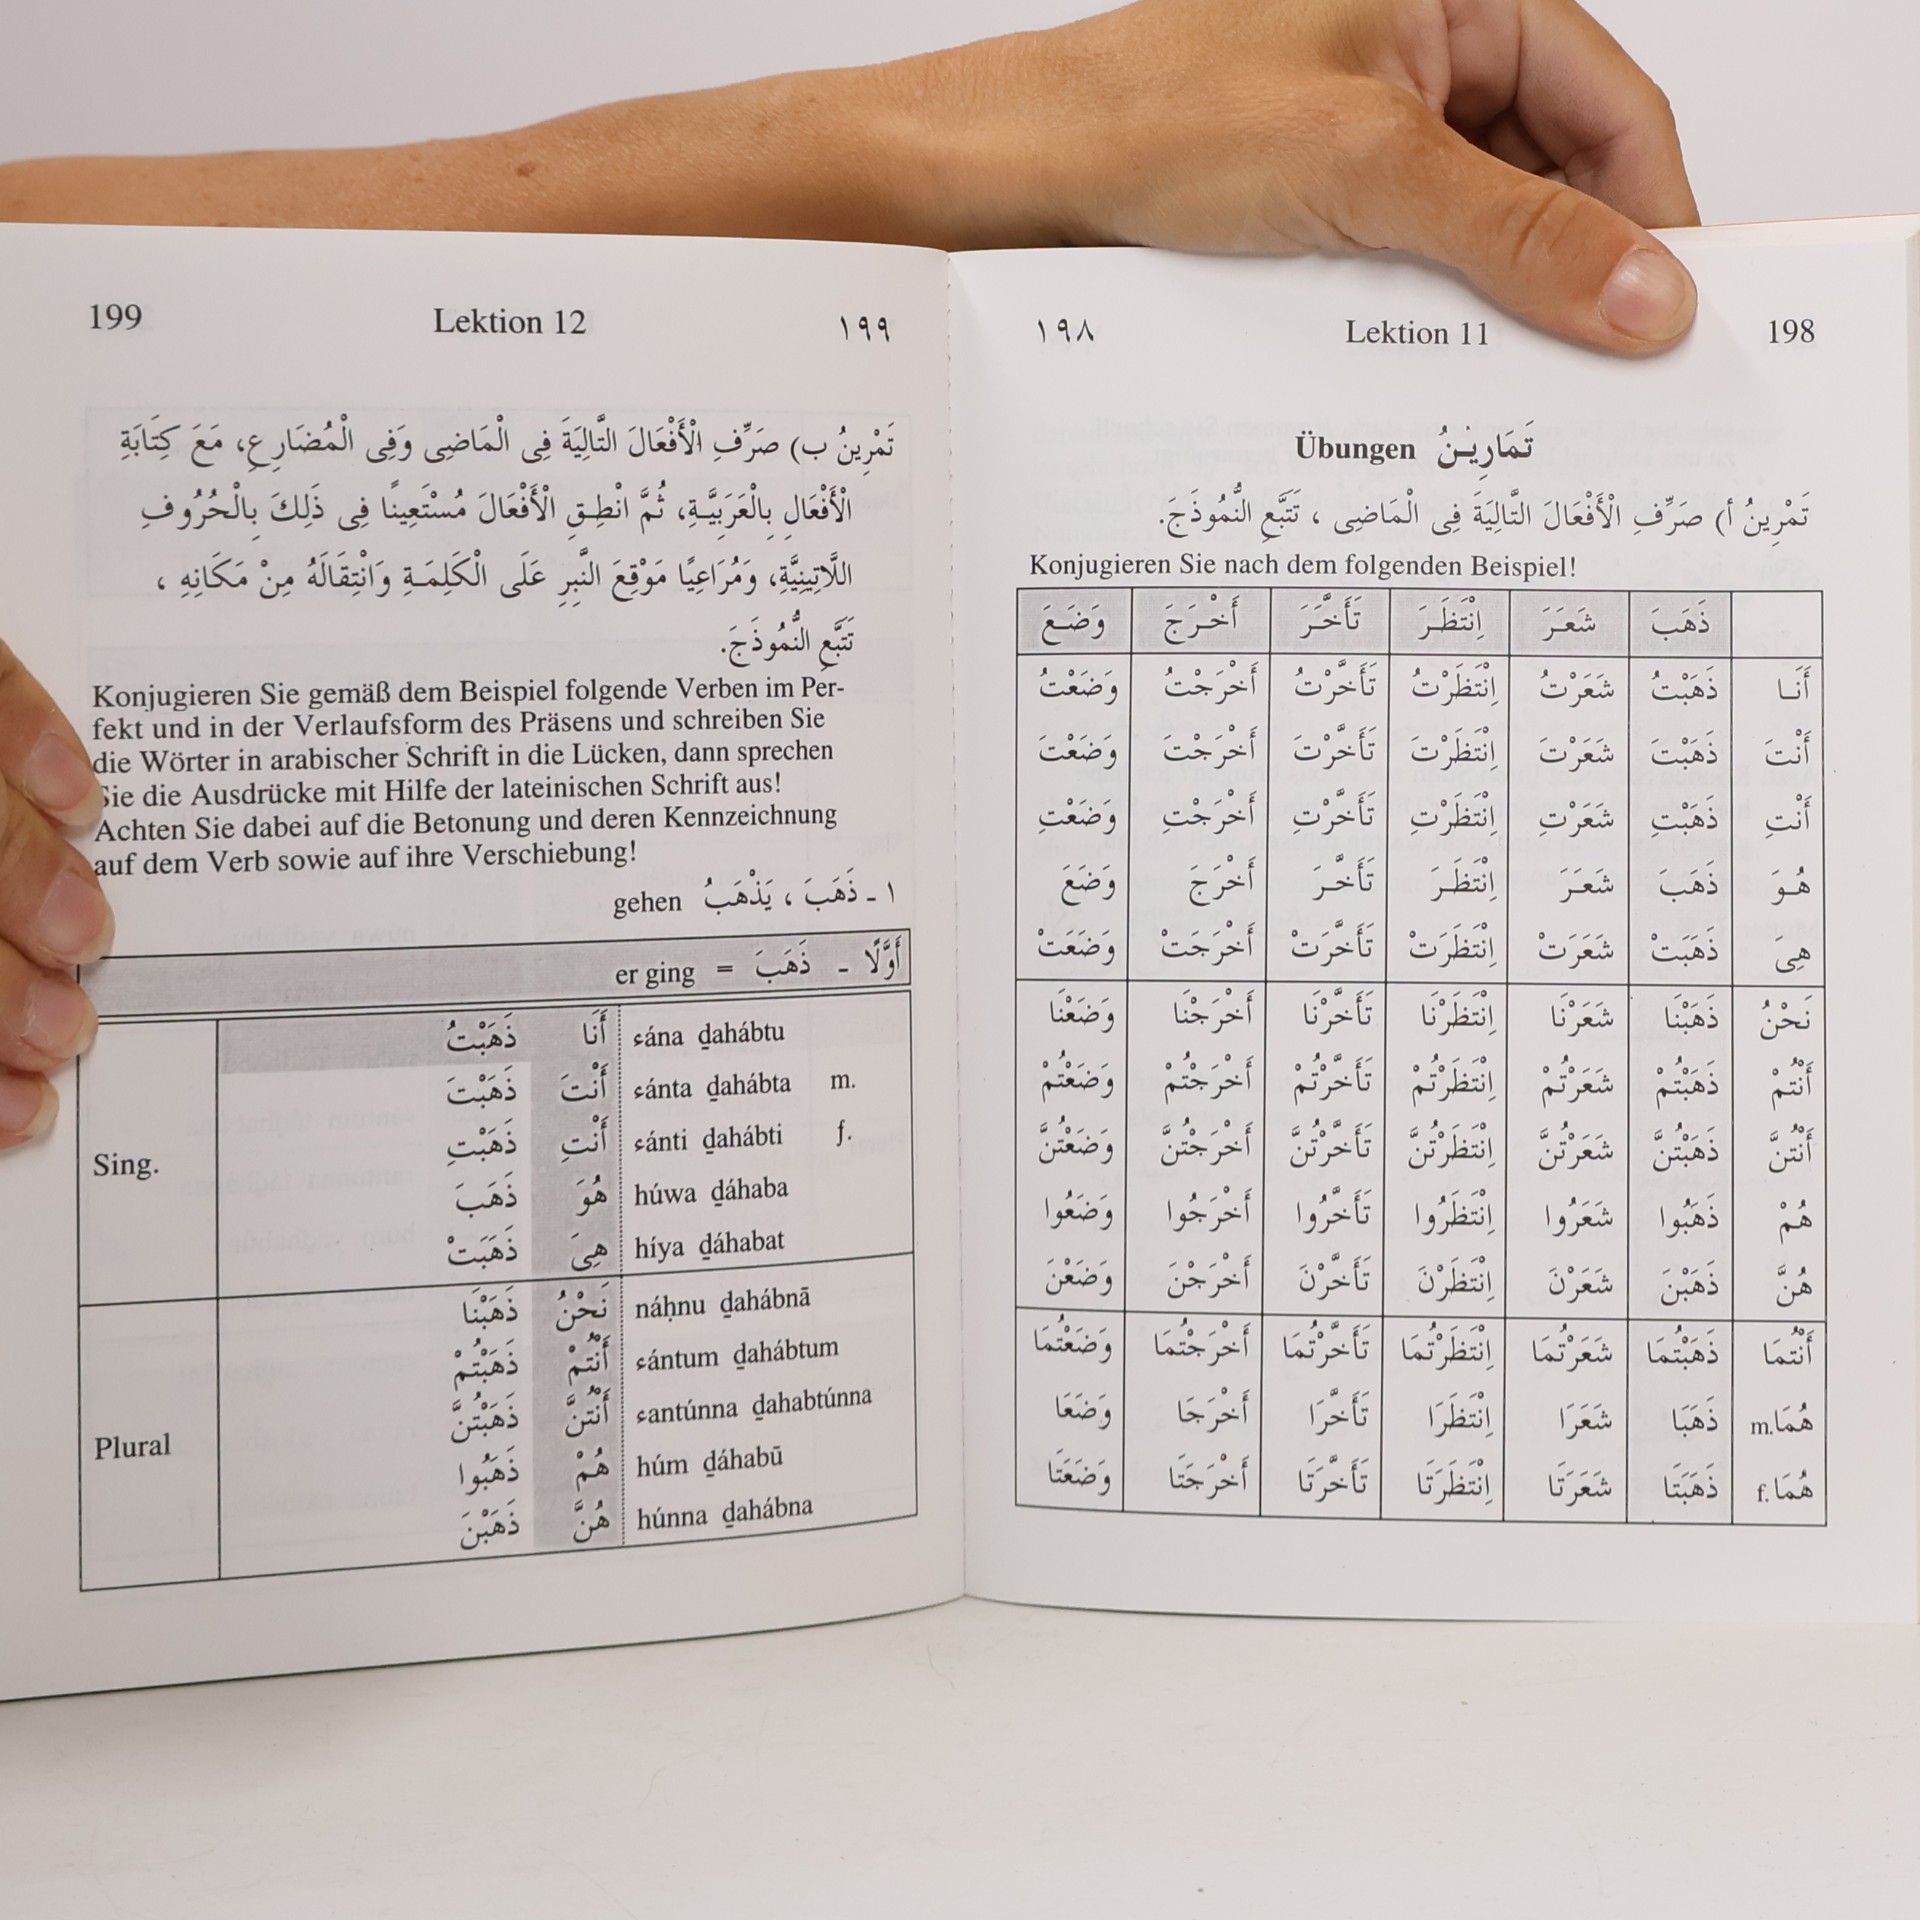 ١٩٨ Lektion 11 198
Übungen تَمَارِيـْنُ
تَمْرِينُ أ) صَرِّفِ الْأَفْعَالَ التَّالِيَةَ فِى الْمَاضِى ، تَتَبَّعِ النُّمُوذَجَ.
Konjugieren Sie nach dem folgenden Beispiel!
ذَهَبَ شَعَـرَ اِنْتَظَـرَ تَأَخَّـرَ أَخْـرَجَ وَضَـعَ
أَنَـا ذَهَبْتُ شَعَرْتُ اِنْتَظَرْتُ تَأَخَّرْتُ أَخْرَجْتُ وَضَعْتُ
أَنْتَ ذَهَبْتَ شَعَرْتَ اِنْتَظَرْتَ تَأَخَّرْتَ أَخْرَجْتَ وَضَعْتَ
أَنْتِ ذَهَبْتِ شَعَرْتِ اِنْتَظَرْتِ تَأَخَّرْتِ أَخْرَجْتِ وَضَعْتِ
هُـوَ ذَهَبَ شَعَـرَ اِنْتَظَـرَ تَأَخَّـرَ أَخْرَجَ وَضَعَ
هِىَ ذَهَبَتْ شَعَرَتْ اِنْتَظَرَتْ تَأَخَّرَتْ أَخْرَجَتْ وَضَعَتْ
نَحْنُ ذَهَبْنَا شَعَرْنَا اِنْتَظَرْنَا تَأَخَّرْنَا أَخْرَجْنَا وَضَعْنَا
أَنْتُمْ ذَهَبْتُمْ شَعَرْتُمْ اِنْتَظَرْتُمْ تَأَخَّرْتُمْ أَخْرَجْتُمْ وَضَعْتُمْ
أَنْتُنَّ ذَهَبْتُنَّ شَعَرْتُنَّ اِنْتَظَرْتُنَّ تَأَخَّرْتُنَّ أَخْرَجْتُنَّ وَضَعْتُنَّ
هُمْ ذَهَبُوا شَعَرُوا اِنْتَظَرُوا تَأَخَّرُوا أَخْرَجُوا وَضَعُوا
هُنَّ ذَهَبْنَ شَعَرْنَ اِنْتَظَرْنَ تَأَخَّرْنَ أَخْرَجْنَ وَضَعْنَ
أَنْتُمَا ذَهَبْتُمَا شَعَرْتُمَا اِنْتَظَرْتُمَا تَأَخَّرْتُمَا أَخْرَجْتُمَا وَضَعْتُمَا
هُمَا m. ذَهَبَا شَعَرَا اِنْتَظَرَا تَأَخَّرَا أَخْرَجَا وَضَعَا
هُمَا f. ذَهَبَتَا شَعَرَتَا اِنْتَظَرَتَا تَأَخَّرَتَا أَخْرَجَتَا وَضَعَتَا
199 Lektion 12 ١٩٩
تَمْرِينُ ب) صَرِّفِ الْأَفْعَالَ التَّالِيَةَ فِى الْمَاضِى وَفِى الْمُضَارِعِ، مَعَ كِتَابَةِ
الْأَفْعَالِ بِالْعَرَبِيَّـةِ، ثُمَّ انْطِـقِ الْأَفْعَالَ مُسْتَعِينًا فِى ذَلِكَ بِالْحُرُوفِ
اللَّاتِينِيَّةِ، وَمُرَاعِيًا مَوْقِعَ النَّبِرِ عَلَى الْكَلِمَـةِ وَانْتِقَالَهُ مِنْ مَكَانِهِ ،
تَتَبَّعِ النُّمُوذَجَ.
Konjugieren Sie gemäß dem Beispiel folgende Verben im Per-
fekt und in der Verlaufsform des Präsens und schreiben Sie
die Wörter in arabischer Schrift in die Lücken, dann sprechen
Sie die Ausdrücke mit Hilfe der lateinischen Schrift aus!
Achten Sie dabei auf die Betonung und deren Kennzeichnung
auf dem Verb sowie auf ihre Verschiebung!
١ ـ ذَهَبَ ، يَذْهَبُ gehen
أَوَّلًا ـ ذَهَبَ = er ging
Sing.
ذَهَبْتُ أَنَا ءána ḏahábtu
ذَهَبْتَ أَنْتَ ءánta ḏahábta m.
ذَهَبْتِ أَنْتِ ءánti ḏahábti f.
ذَهَبَ هُوَ húwa ḏáhaba
ذَهَبَتْ هِىَ híya ḏáhabat
Plural
ذَهَبْنَا نَحْنُ náḥnu ḏahábnā
ذَهَبْتُمْ أَنْتُمْ ءántum ḏahábtum
ذَهَبْتُنَّ أَنْتُنَّ ءantúnna ḏahabtúnna
ذَهَبُوا هُمْ húm ḏáhabū
ذَهَبْنَ هُنَّ húnna ḏahábna